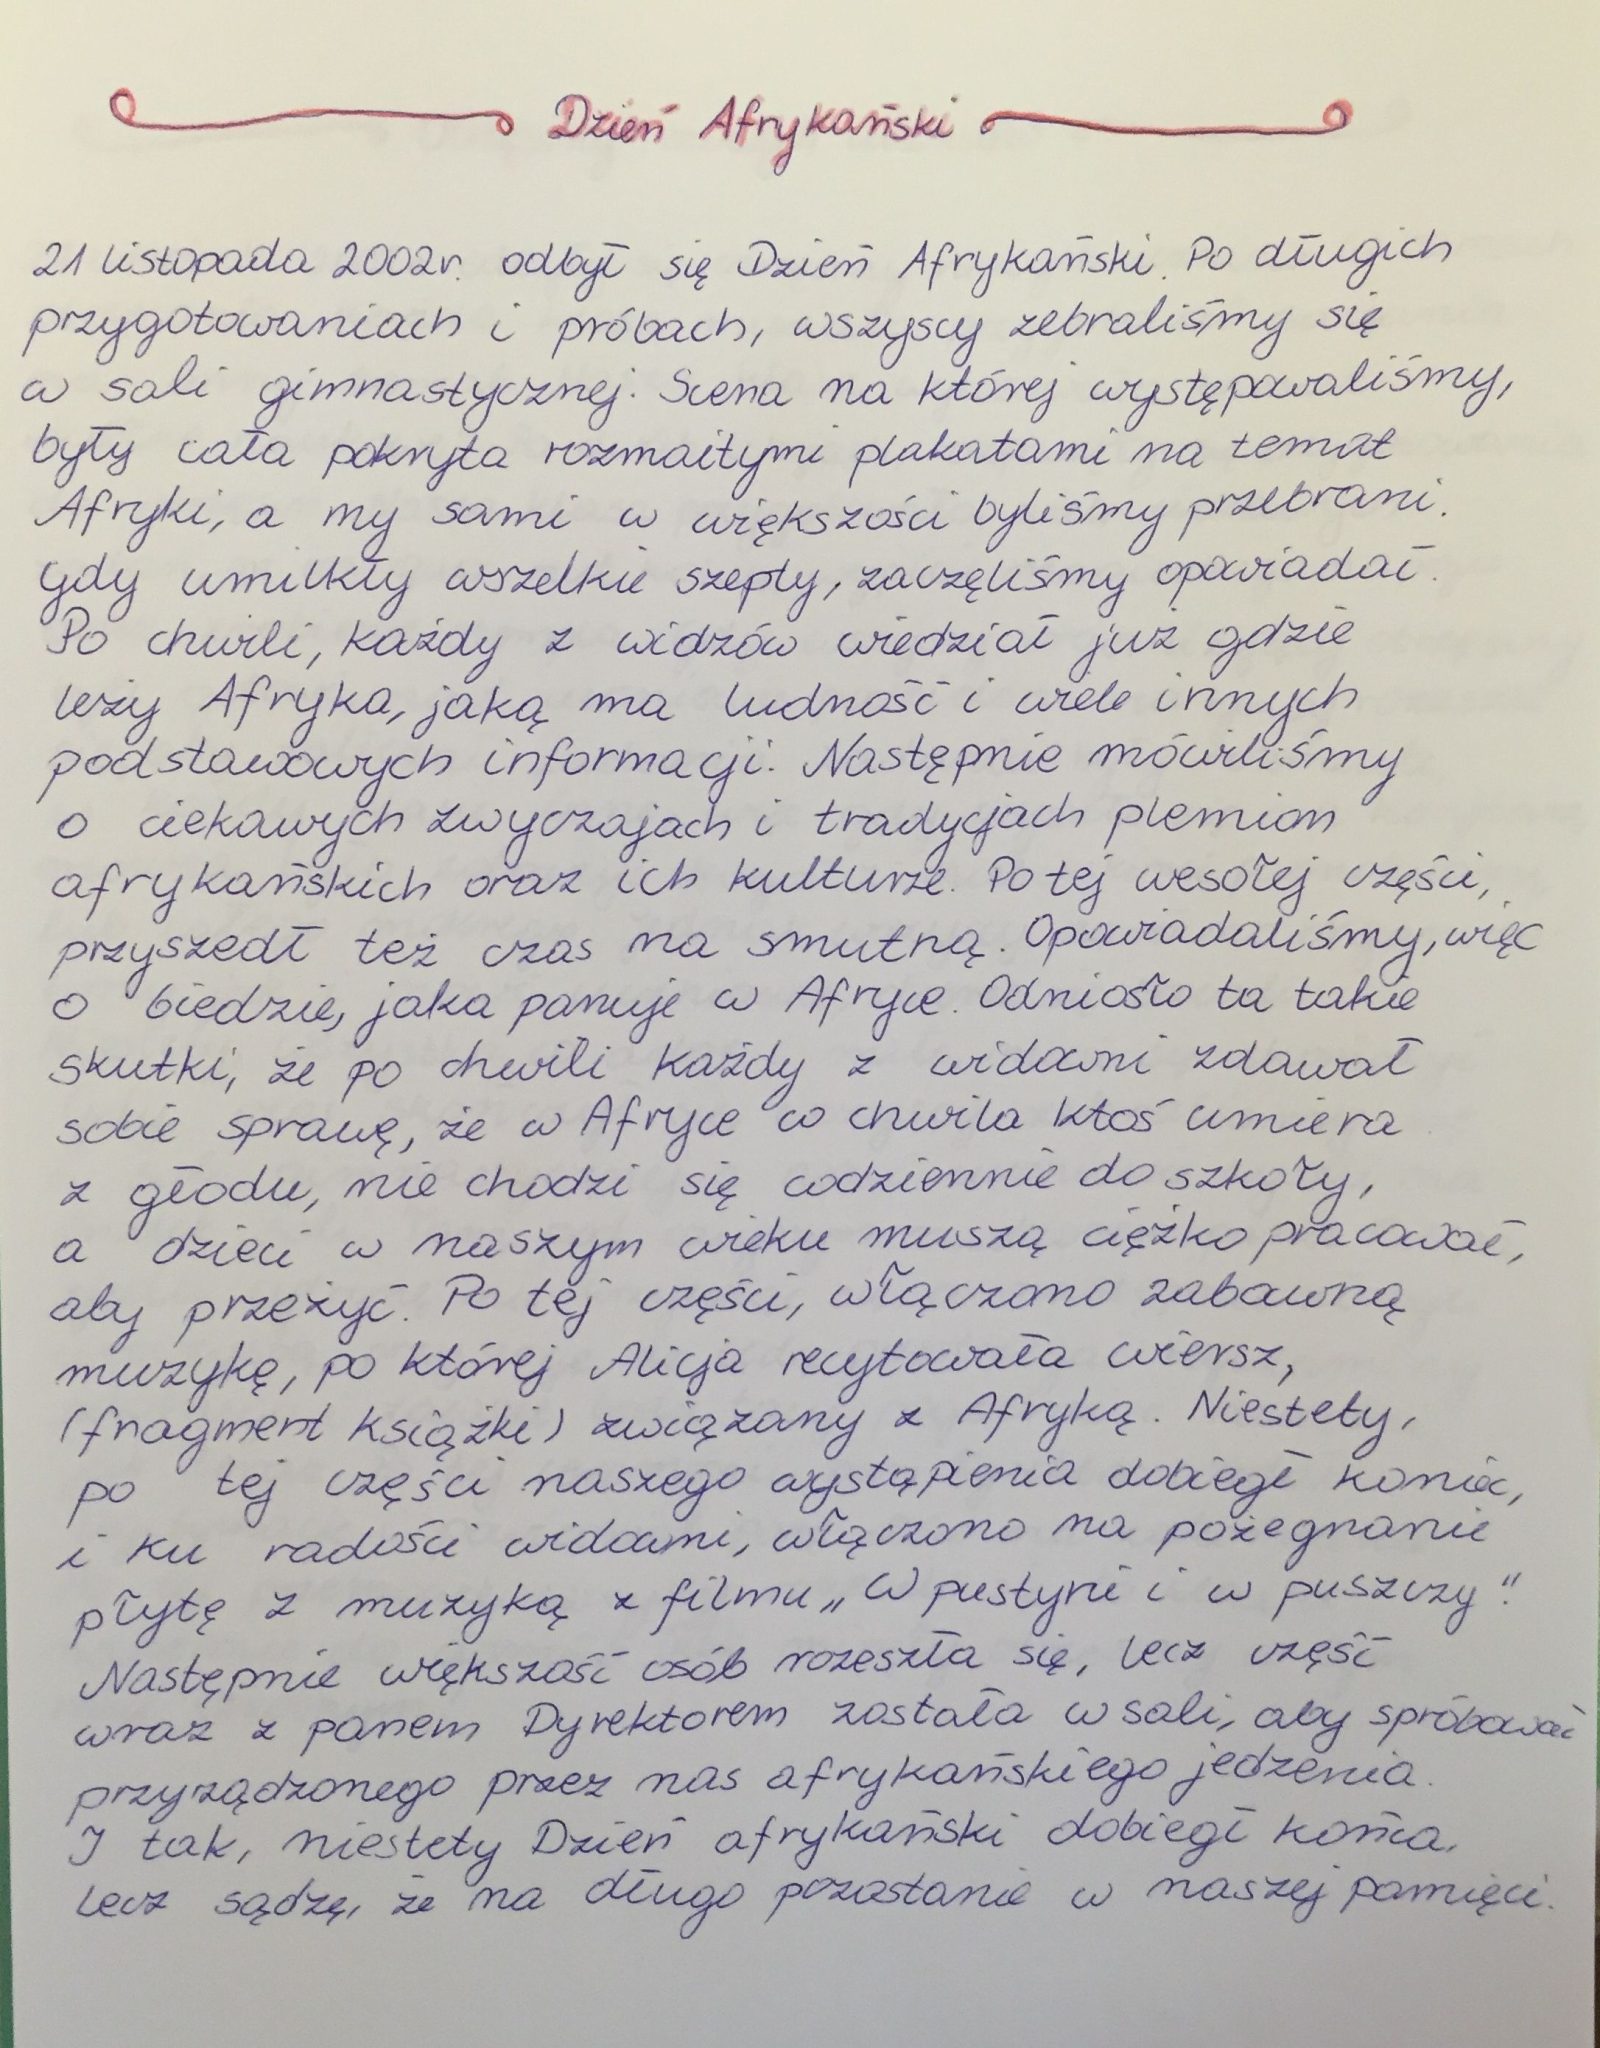 Dzień Afrykański
21 listopada 2002r. odbył się Dzień Afrykański. Po długich
przygotowaniach i próbach, wszyscy zebraliśmy się
w sali gimnastycznej. Scena na której występowaliśmy,
były cała pokryta rozmaitymi plakatami na temat
Afryki, a my sami w większości byliśmy przebrani.
Gdy umilkły wszelkie szepty, zaczęliśmy opowiadać.
Po chwili, każdy z widzów wiedział już gdzie
leży Afryka, jaką ma ludność i wiele innych
podstawowych informacji. Następnie mówiliśmy
o ciekawych zwyczajach i tradycjach plemion
afrykańskich oraz ich kulturze. Po tej wesołej części,
przyszedł też czas na smutną. Opowiadaliśmy, więc
o biedzie, jaka panuje w Afryce. Odniosło to takie
skutki, że po chwili każdy z widowni zdawał
sobie sprawę, że w Afryce co chwila ktoś umiera
z głodu, nie chodzi się codziennie do szkoły,
a dzieci w naszym wieku muszą ciężko pracować,
aby przeżyć. Po tej części, włączono zabawną
muzykę, po której Alicja recytowała wiersz,
(fragment książki) związany z Afryką. Niestety,
po tej części naszego wystąpienia dobiegł koniec,
i ku radości widowni, włączono na pożegnanie
płytę z muzyką z filmu „W pustyni i w puszczy".
Następnie większość osób rozeszła się, lecz część
wraz z panem Dyrektorem została w sali, aby spróbować
przyrządzonego przez nas afrykańskiego jedzenia.
I tak, niestety Dzień afrykański dobiegł końca.
Lecz sądzę, że na długo pozostanie w naszej pamięci.